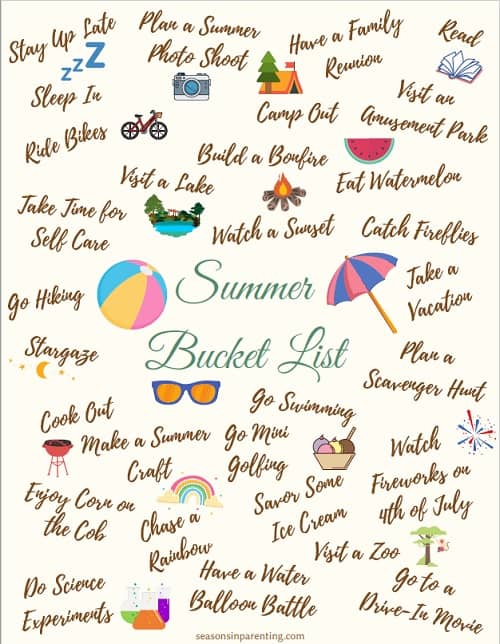 Stay Up Late
Plan a Summer
Photo Shoot
Have a Family
Reunion
Read
zzZ
Sleep In
Camp Out
Visit an
Amusement Park
Ride Bikes
Build a Bonfire
Visit a Lake
Eat Watermelon
Take Time for
Self Care
Watch a Sunset
Catch Fireflies
Go Hiking
Summer
Bucket List
Take a
Vacation
Stargaze
Plan a
Scavenger Hunt
Go Swimming
Cook Out
Make a Summer
Craft
Go Mini
Golfing
Watch
Fireworks on
4th of July
Enjoy Corn on
the Cob
Chase a
Rainbow
Savor Some
Ice Cream
Visit a Zoo
Do Science
Experiments
Have a Water
Balloon Battle
Go to a
Drive-In Movie
seasonsinparenting.com